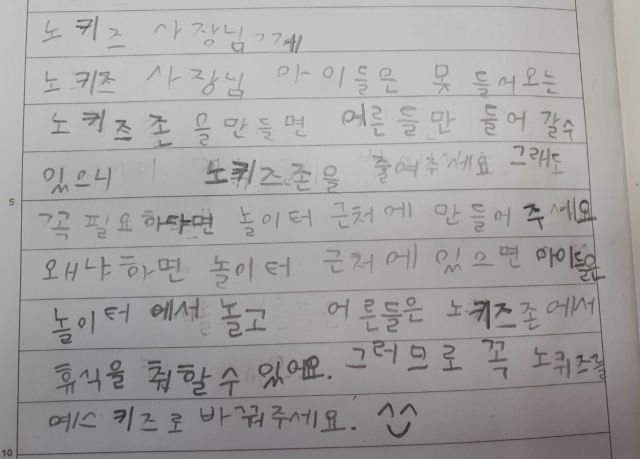 노 키즈 사장님께
노 키즈 사장님 아이들은 못 들어오는
노 키즈 존을 만들면 어른들만 들어 갈수
있으니 노키즈존을 줄여주세요 그래도
꼭 필요하다면 놀이터 근처에 만들어 주세요
왜냐하면 놀이터 근처에 있으면 아이들은
놀이터에서 놀고 어른들은 노키즈존에서
휴식을 취할 수 있어요. 그러므로 꼭 노퀴즈를
예스 키즈로 바꿔주세요. ^^
5
10